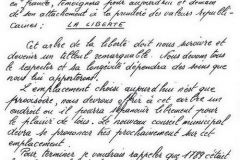 en France, témoignera pour aujourd'hui et demain
de son attachement à la première des valeurs républi-
caines: LA LIBERTE
Cet arbre de la liberté doit nous survivre et
devenir un tilleul remarquable. Nous devons tous
le respecter et sa longévité dépendra des soins que
nous lui apporterons.
L'emplacement choisi aujourd'hui n'est que
provisoire, nous devrons offrir à cet arbre un
endroit où il pourra s'épanouir librement pour
le plaisir de tous. Le nouveau conseil municipal
devra se prononcer très prochainement sur cet
emplacement.
Pour terminer je voudrais rappeler que 1789 était